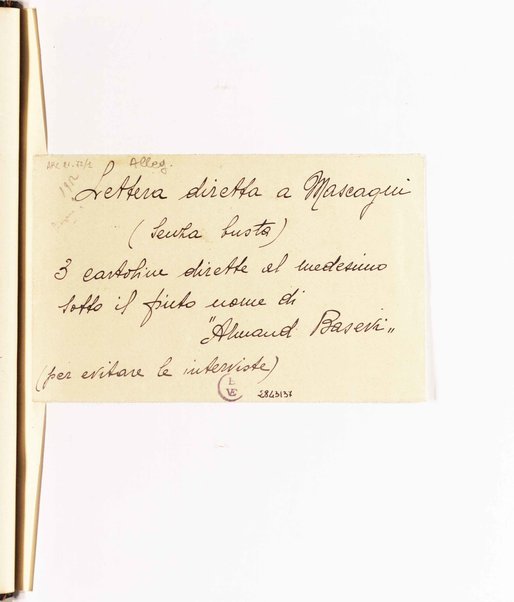 ARC 21.72/2 Alleg.
1912
Lettera diretta a Mascagni
(senza busta)
3 cartoline dirette al medesimo
sotto il finto nome di
"Armand Basevi"
(per evitare le interviste)
B
VE
2843137